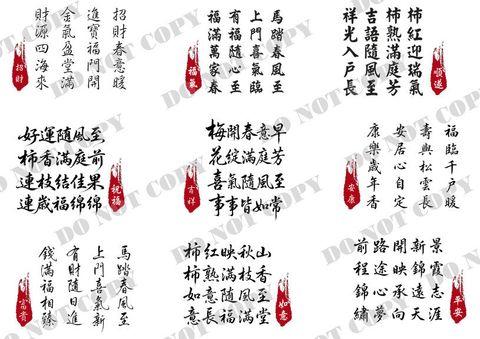 招財春意暖
進寶福門開
金氣盈堂滿
財源四海來
招財
馬踏春風至
上門喜氣臨
有福隨心至
福滿萬家春
福氣
柿紅迎瑞氣
柿熟滿庭芳
吉語隨風至
祥光入戶長
順遂
好運隨風至
柿香滿庭前
連枝結佳果
連歲福綿綿
祝福
梅開春意早
花綻滿庭芳
喜氣隨風至
事事皆如常
吉祥
福臨千戶暖
壽與松雲長
安居心自定
康樂歲年香
安康
馬踏春風至
上門喜氣新
有財隨日進
錢滿福相臻
富貴
柿紅映秋山
柿熟滿枝香
如意隨風至
意長福滿堂
如意
前路開新景
程途映錦霞
錦心承遠志
繡夢向天涯
平安
DO NOT COPY